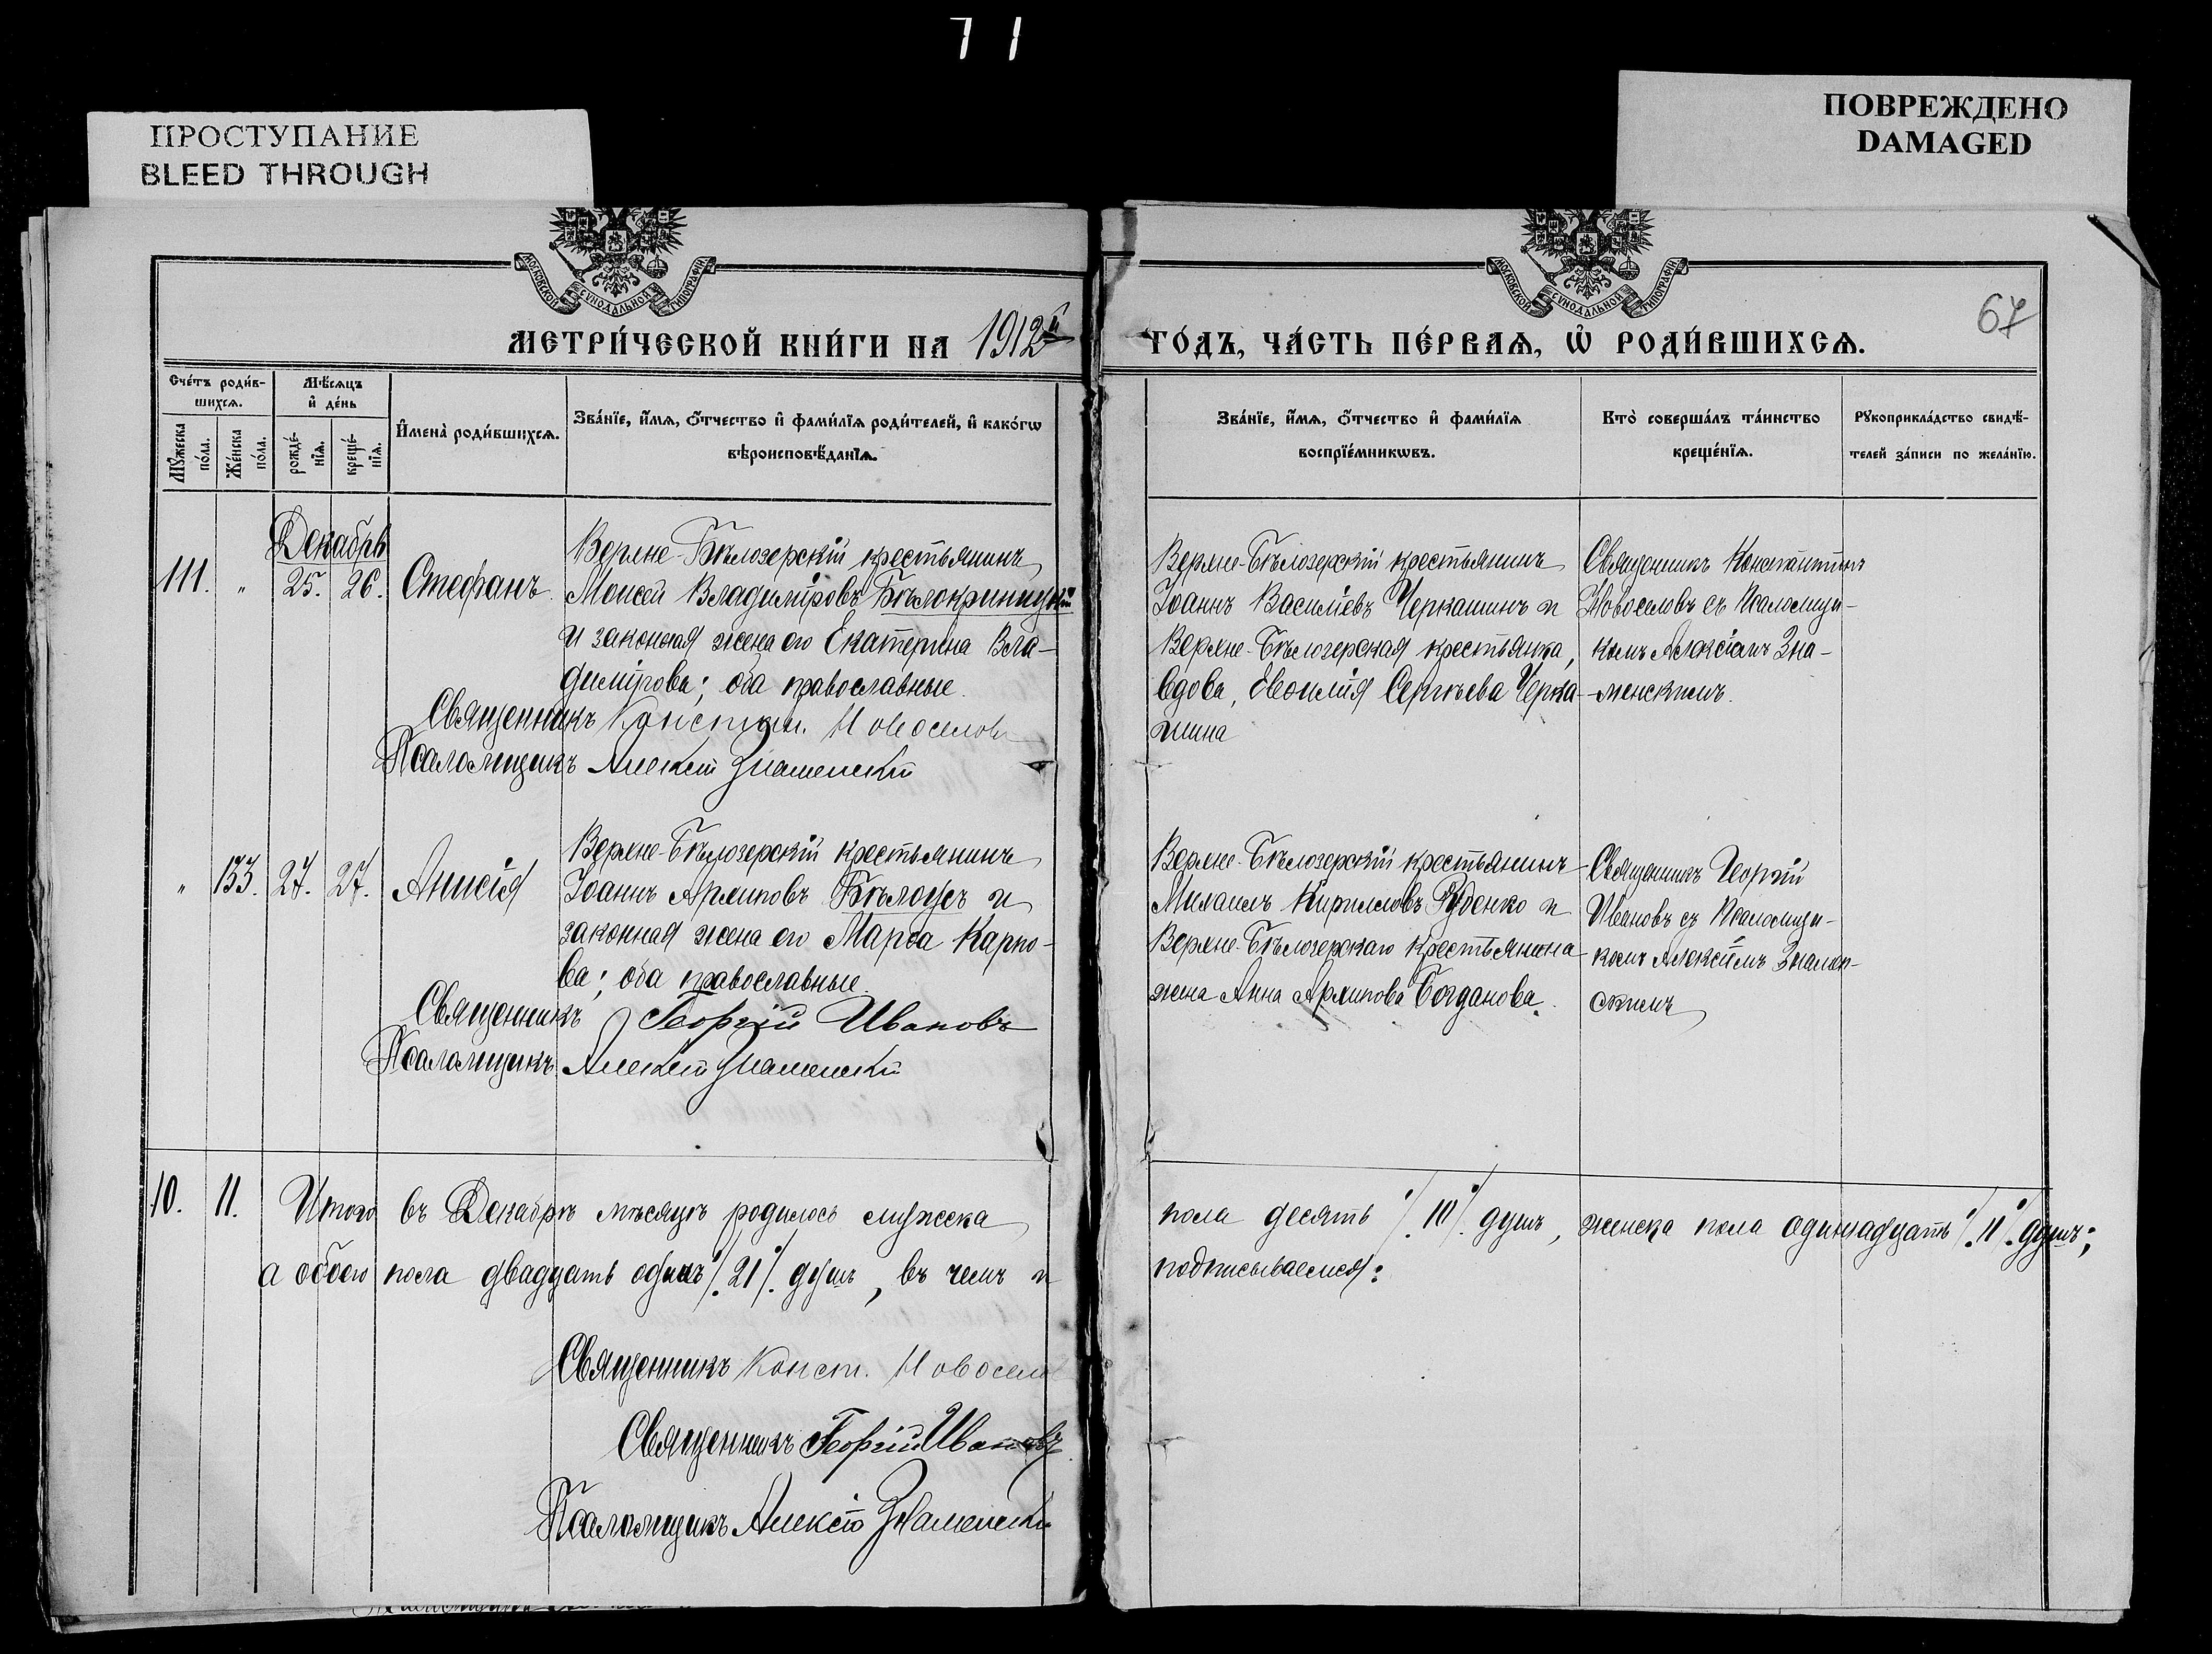 71
ПРОСТУПАНИЕ
BLEED THROUGH
ПОВРЕЖДЕНО
DAMAGED
МОСКОВСКОЙ СѴНОДАЛЬНОЙ ТИПОГРАФІИ
МОСКОВСКОЙ СѴНОДАЛЬНОЙ ТИПОГРАФІИ
67
МЕТРИ́ЧЕСКОЙ КНИ́ГИ НА 1912й
ГО́ДЪ, ЧА́СТЬ ПЕ́РВАѦ, Ѡ҆ РОДИ́ВШИХСѦ.
Сче́тъ роди́в-
шихсѧ.
Мѣ́сѧцъ
и҆ де́нь
Мꙋ́жеска
по́ла.
Же́нска
по́ла.
рожде́-
нїѧ.
креще́-
нїѧ.
И҆мена̀ роди́вшихсѧ.
Зва́нїе, и҆́мѧ, ѻ҆́тчество и҆ фами́лїѧ роди́телей, и҆ како́гѡ
вѣроисповѣ́данїѧ.
Зва́нїе, и҆́мѧ, ѻ҆́тчество и҆ фами́лїѧ
воспрїе́мникѡвъ.
Кто̀ соверша́лъ та́инство
креще́нїѧ.
Рꙋкоприкла́дство свидѣ́-
телей за́писи по жела́нїю.
Декабрь
111. " 25. 26. Стефанъ
Верхне-Бѣлозерскій крестьянинъ
Моисей Владиміровъ Бѣлокриницкій
и законная жена его Екатерина Вла-
димірова; оба православные.
Священникъ Констан. Новоселовъ
Псаломщикъ Алексій Знаменскій
Верхне-Бѣлозерскій крестьянинъ
Іоаннъ Василіевъ Черкашинъ и
Верхне-Бѣлозерская крестьянка,
вдова, Евѳимія Сергѣева Черка-
шина
Священникъ Константинъ
Новоселовъ съ Псаломщи-
комъ Алексіемъ Зна-
менскимъ.
" 133. 27. 27. Анисія
Верхне-Бѣлозерскій крестьянинъ
Іоаннъ Архиповъ Бѣлоусъ и
законная жена его Марѳа Карпо-
ва; оба православные.
Священникъ Георгій Ивановъ
Псаломщикъ Алексій Знаменскій
Верхне-Бѣлозерскій крестьянинъ
Михаилъ Кирилловъ Руденко и
Верхне-Бѣлозерскаго крестьянина
жена Анна Архипова Богданова.
Священникъ Георгій
Ивановъ съ Псаломщи-
комъ Алексіемъ Знамен-
скимъ
10. 11. Итого въ Декабрѣ мѣсяцѣ родилось мужеска
пола десять ./. 10 ./. душъ, женска пола одинадцать ./. 11 ./. душъ;
а обоего пола двадцать одинъ ./. 21 ./. душъ, въ чемъ и
подписываемся:
Священникъ Конст. Новоселов
Священникъ Георгій Ивановъ
Псаломщикъ Алексій Знаменскій